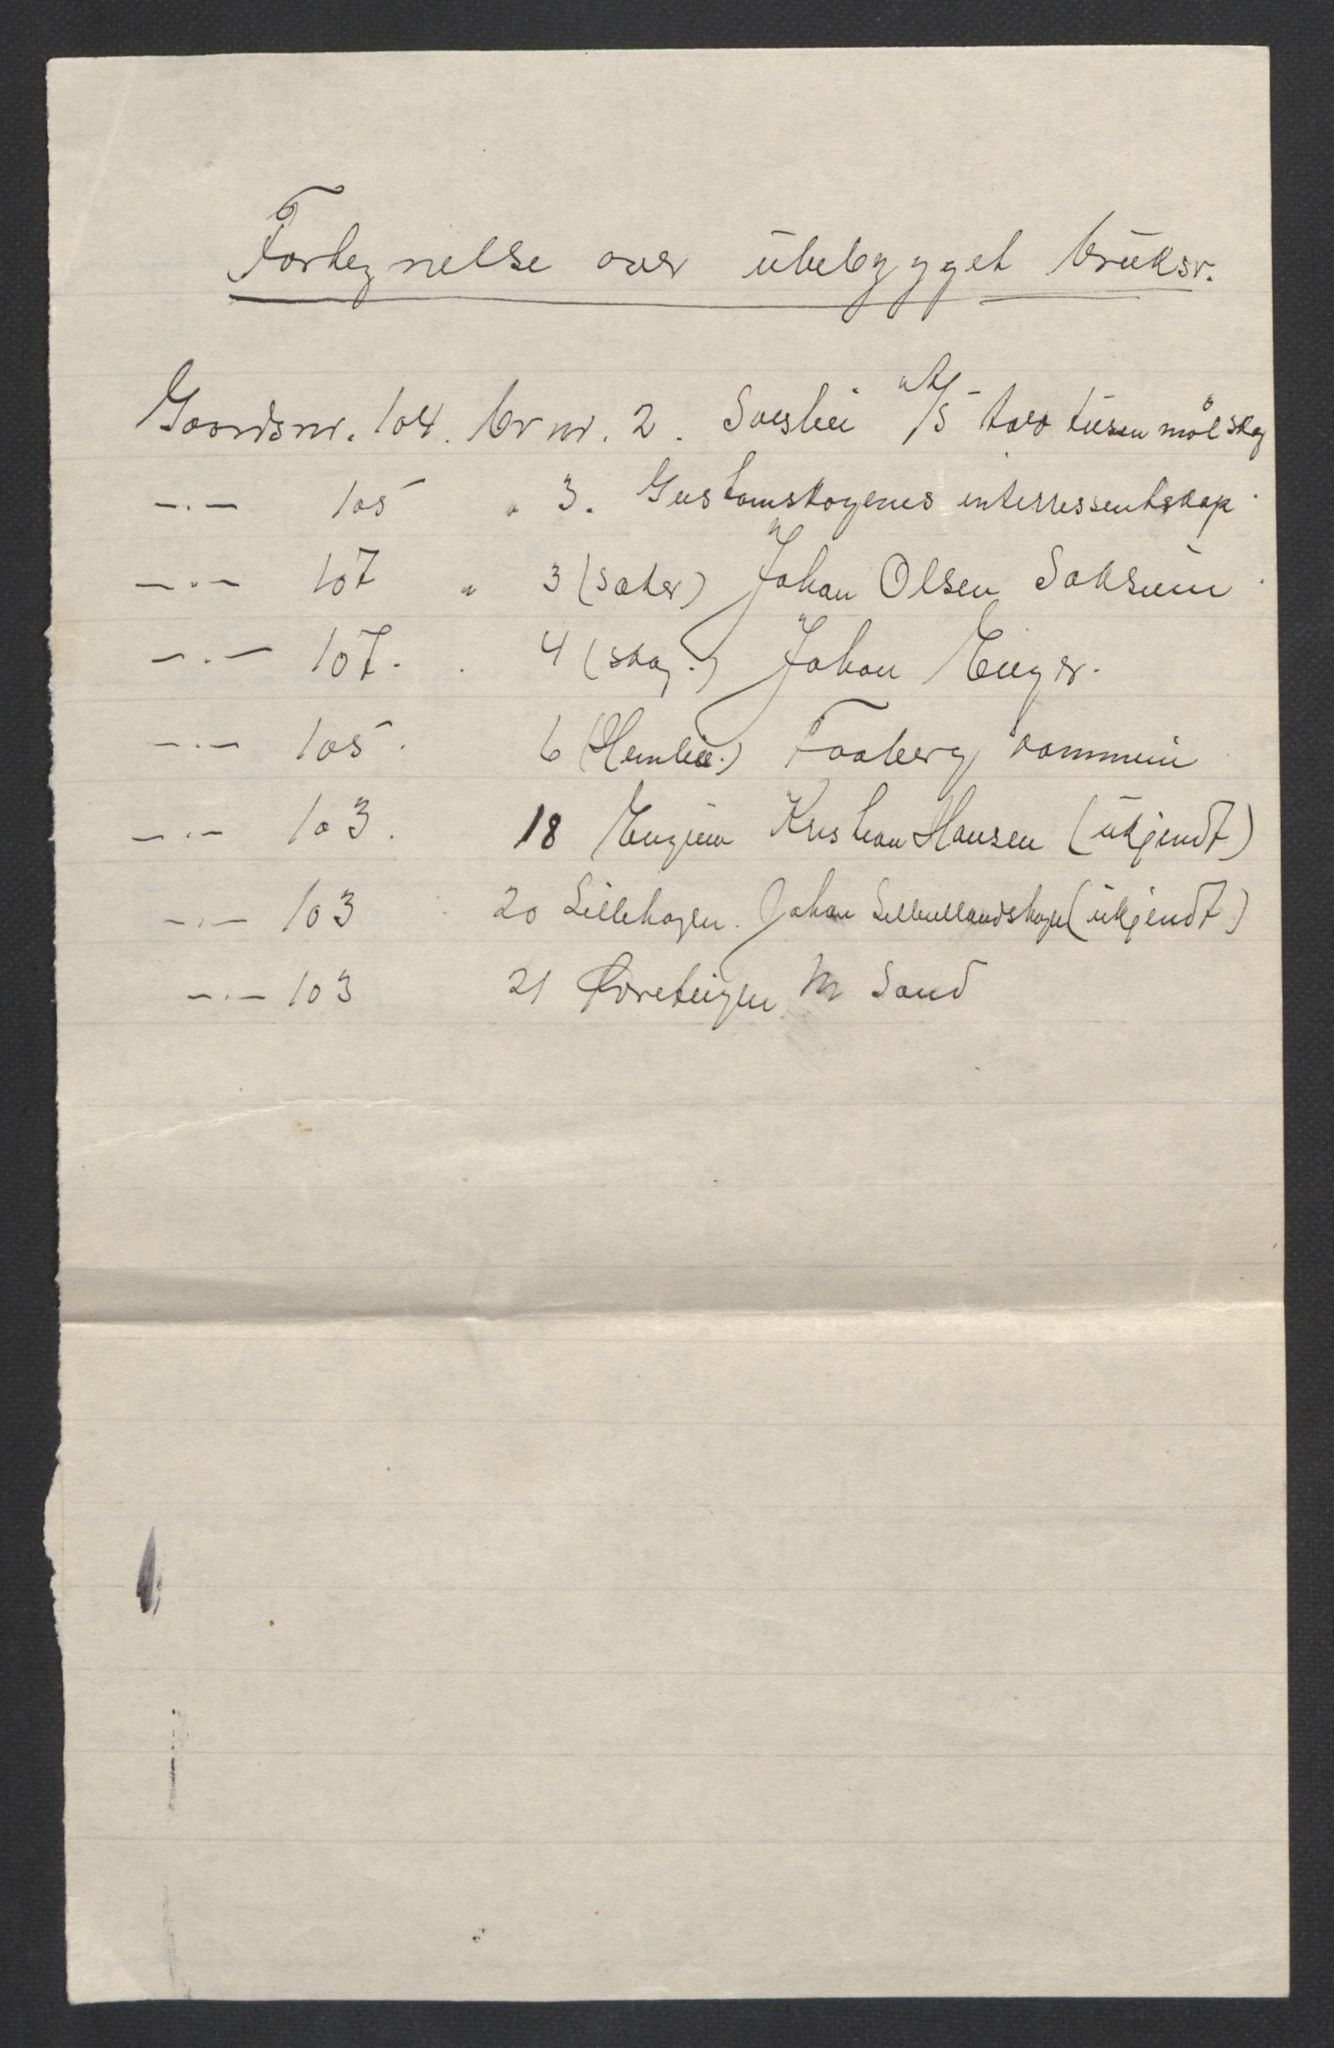 Fortegnelse over ubebygget bruksr.
Gaardsnr. 104. br nr. 2. Sveslii A/S tolv tusen mål skog
-.- 105 " 3. Gustomskogenes interressentskap
-.- 107 " 3 (sæter) Johan Olsen Saksum
-.- 107. . 4 (skog.) Johan Enger.
-.- 105. 6 (Hemlie.) Faaberg kommun
-.- 103. 18 Kristian Hansen (ukjendt)
-.- 103 20 Lillehagen. Johan (ukjendt)
-.- 103 21 Øvreteigen M Sand